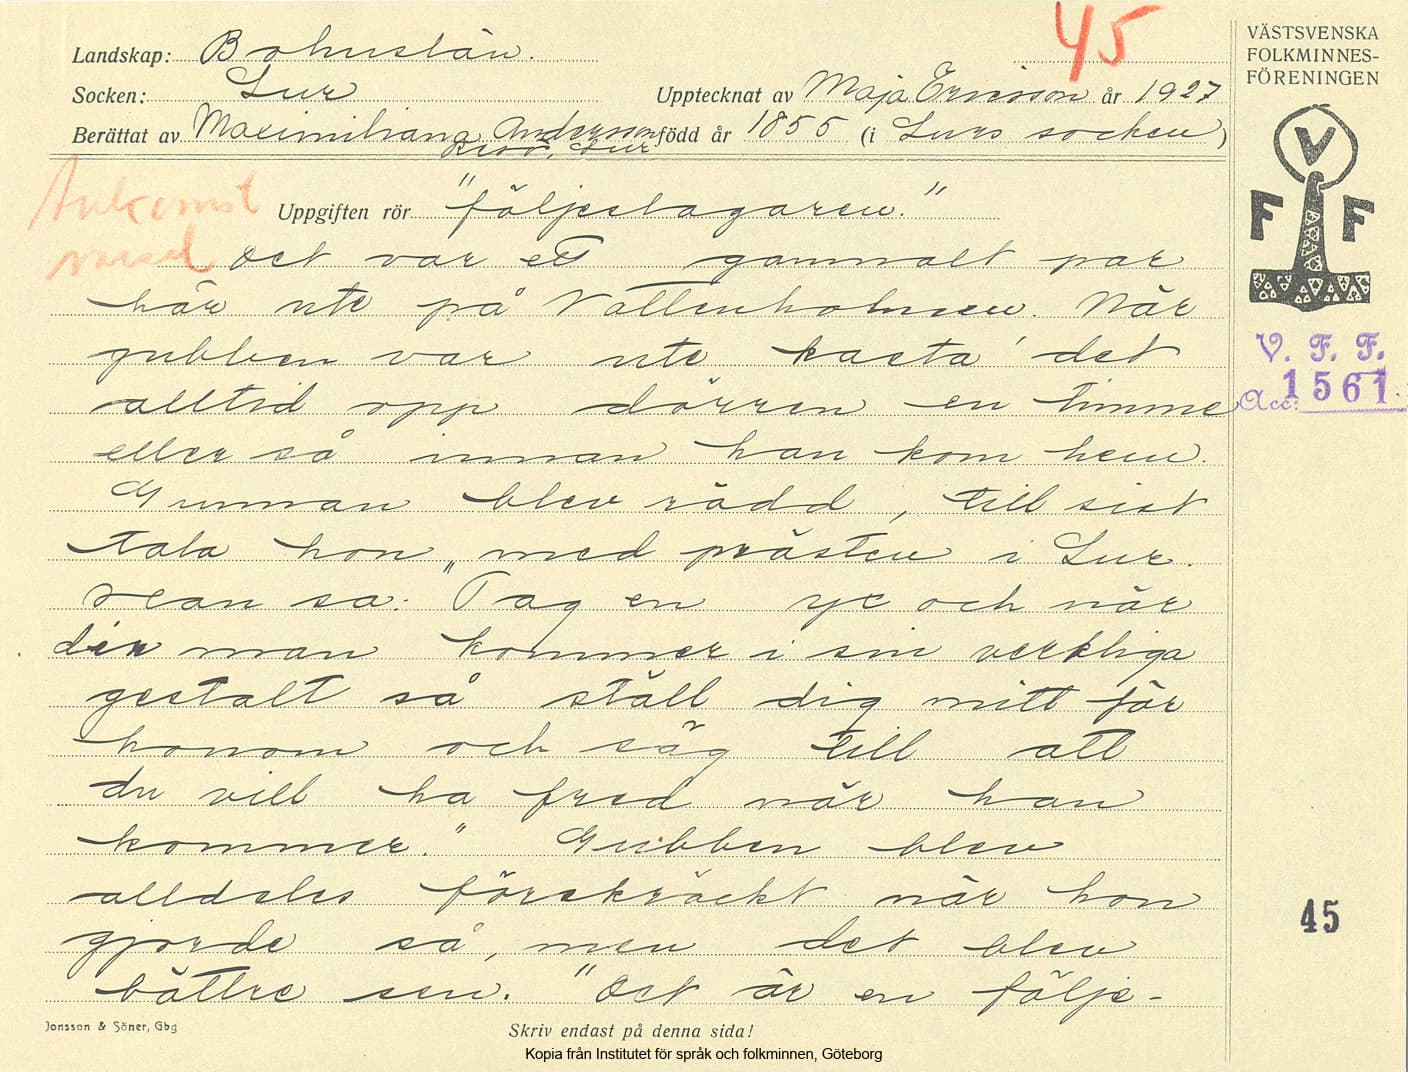 45
VÄSTSVENSKA
FOLKMINNES-
FÖRENINGEN
Landskap: Bohuslän.
Socken: Lur
Upptecknat av Maja Ericsson år 1927
Berättat av Maximiliana Andersson född år 1855 (i Lurs socken)
Lur
V
F F
Ankomst
varsel
Uppgiften rör "följeslagaren."
Det var ett gammalt par
här ute på Vattenholmen. När
gubben var ute kasta' det
alltid opp dörren en timme
eller så innan han kom hem.
Gumman blev rädd, till sist
tala hon med prästen i Lur.
Han sa: "Tag en yx och när
din man kommer i sin verkliga
gestalt så ställ dig mitt för
honom och säg till att
du vill ha fred när han
kommer." Gubben blev
alldeles förskräckt när hon
gjorde så, men det blev
bättre sen. "Det är en följe-
V. F. F.
Acc: 1561
45
Jonsson & Söner, Gbg
Skriv endast på denna sida!
Kopia från Institutet för språk och folkminnen, Göteborg